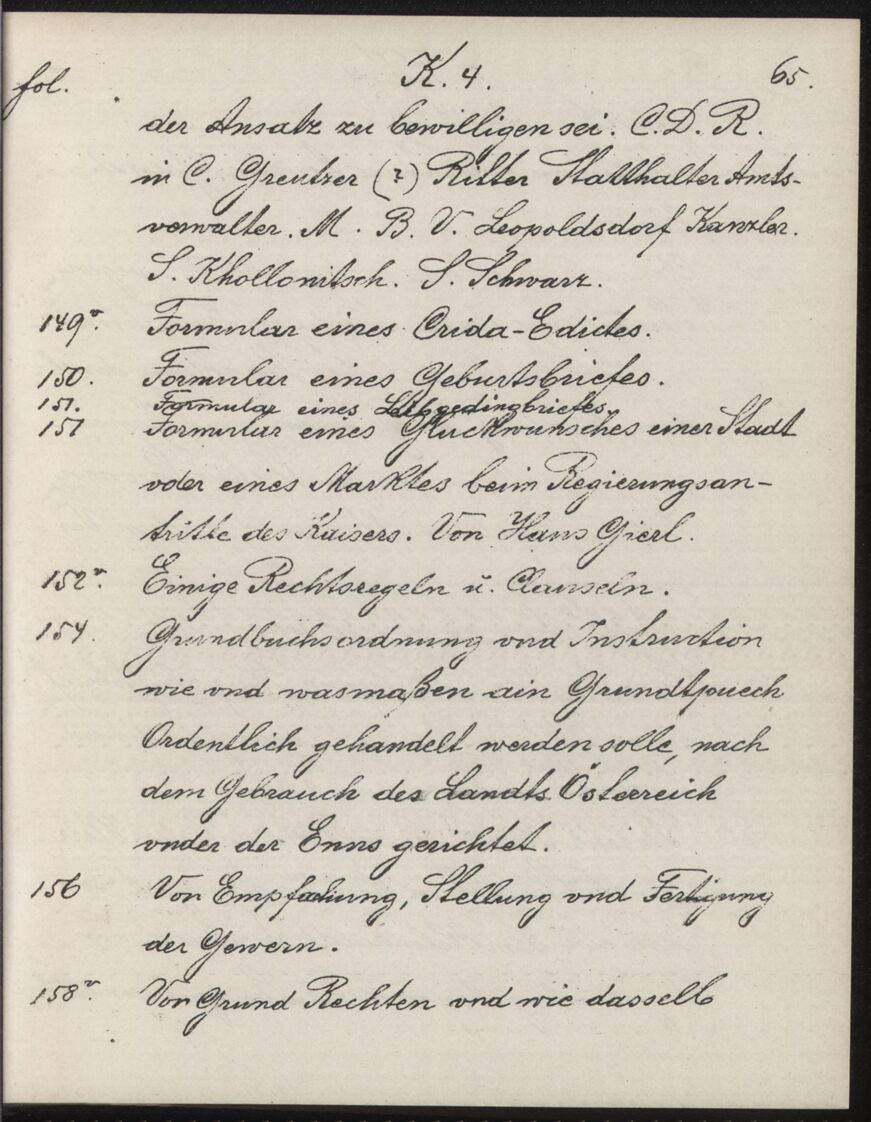 fol. K. 4. 65.
der Ansatz zu bewilligen sei. C. D. R.
in C. Greutzer (?) Ritter Statthalter Amts-
verwalter. M. B. V. Leopoldsdorf Kanzler.
S. Khollonitsch. S. Schwarz.
149v. Formular eines Crida-Edictes.
150. Formular eines Geburtsbriefes.
151. Formular eines Leibgedingbriefes
151 Formular eines Glückwunsches einer Stadt
oder eines Marktes beim Regierungsan-
tritte des Kaisers. Von Hans Gierl.
152v. Einige Rechtsregeln u. Clauseln.
154. Grundbuchsordnung vnd Instruction
wie vnd wasmaßen ain Grundtpuech
Ordentlich gehandelt werden solle, nach
dem Gebrauch des Landts Österreich
vnder der Enns gerichtet.
156 Von Empfahung, Stellung vnd Fertigung
der Gewern.
158v. Von Grund Rechten vnd wie dasselb